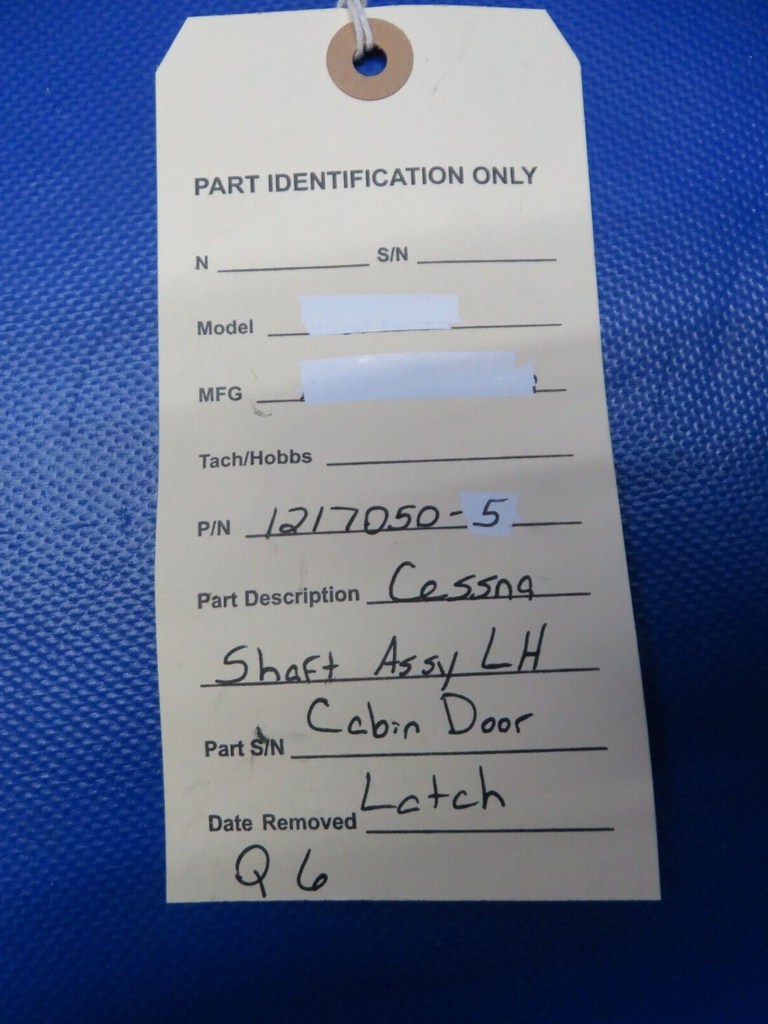 PART IDENTIFICATION ONLY
N S/N
Model
MFG
Tach/Hobbs
P/N 1217050-5
Part Description Cessna
Shaft Assy LH
Part S/N Cabin Door
Date Removed Latch
Q 6